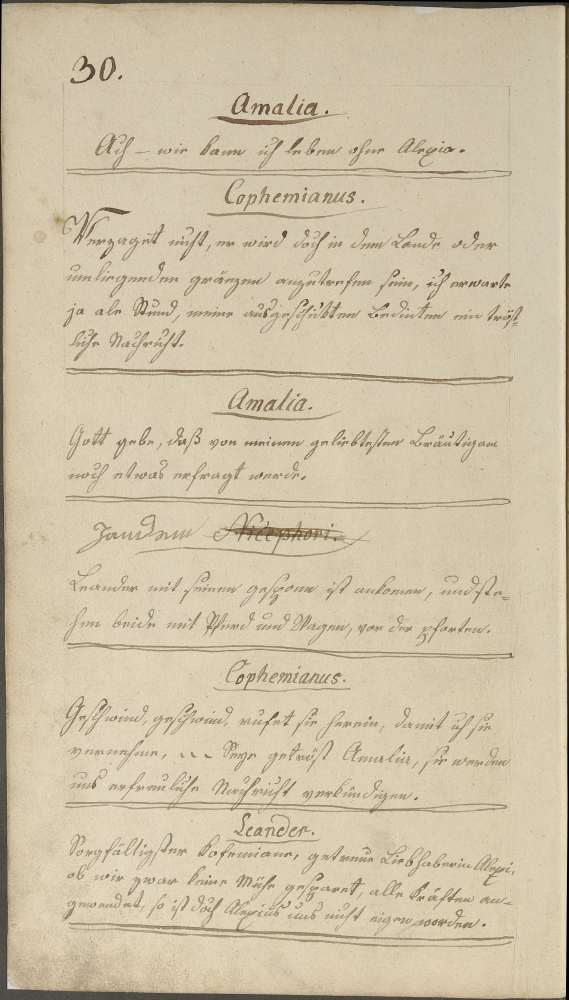 30.
Amalia.
Ach – wie kann ich leben ohne Alexio.
Cophemianus.
Verzaget nicht, er wird doch in dem Lande oder
umliegenden gränzen anzutrefen sein, ich erwarte
ja ale Stund, meine ausgeschikten Bedinten ein tröst-
liche Nachricht.
Amalia.
Gott gebe, daß von meinem geliebtesten Bräutigam
noch etwas erfragt werde.
Nicephori.
Leander mit seinem gesponn ist ankomen, und ste-
hen beide mit Pferd und Wagen, vor der pforten.
Cophemianus.
Geschwind, geschwind, rufet sie herein, damit ich sie
vernehme, Seye getröst Amalia, sie werden
uns erfreuliche Nachricht verkündigen.
Leander.
Sorgfältigster Kofemiane, getreue Liebhaberin Alexi,
ob wir zwar keine Mühe gesparet, alle Kräften an-
gewendet, so ist doch Alexius uns nicht eigen worden.